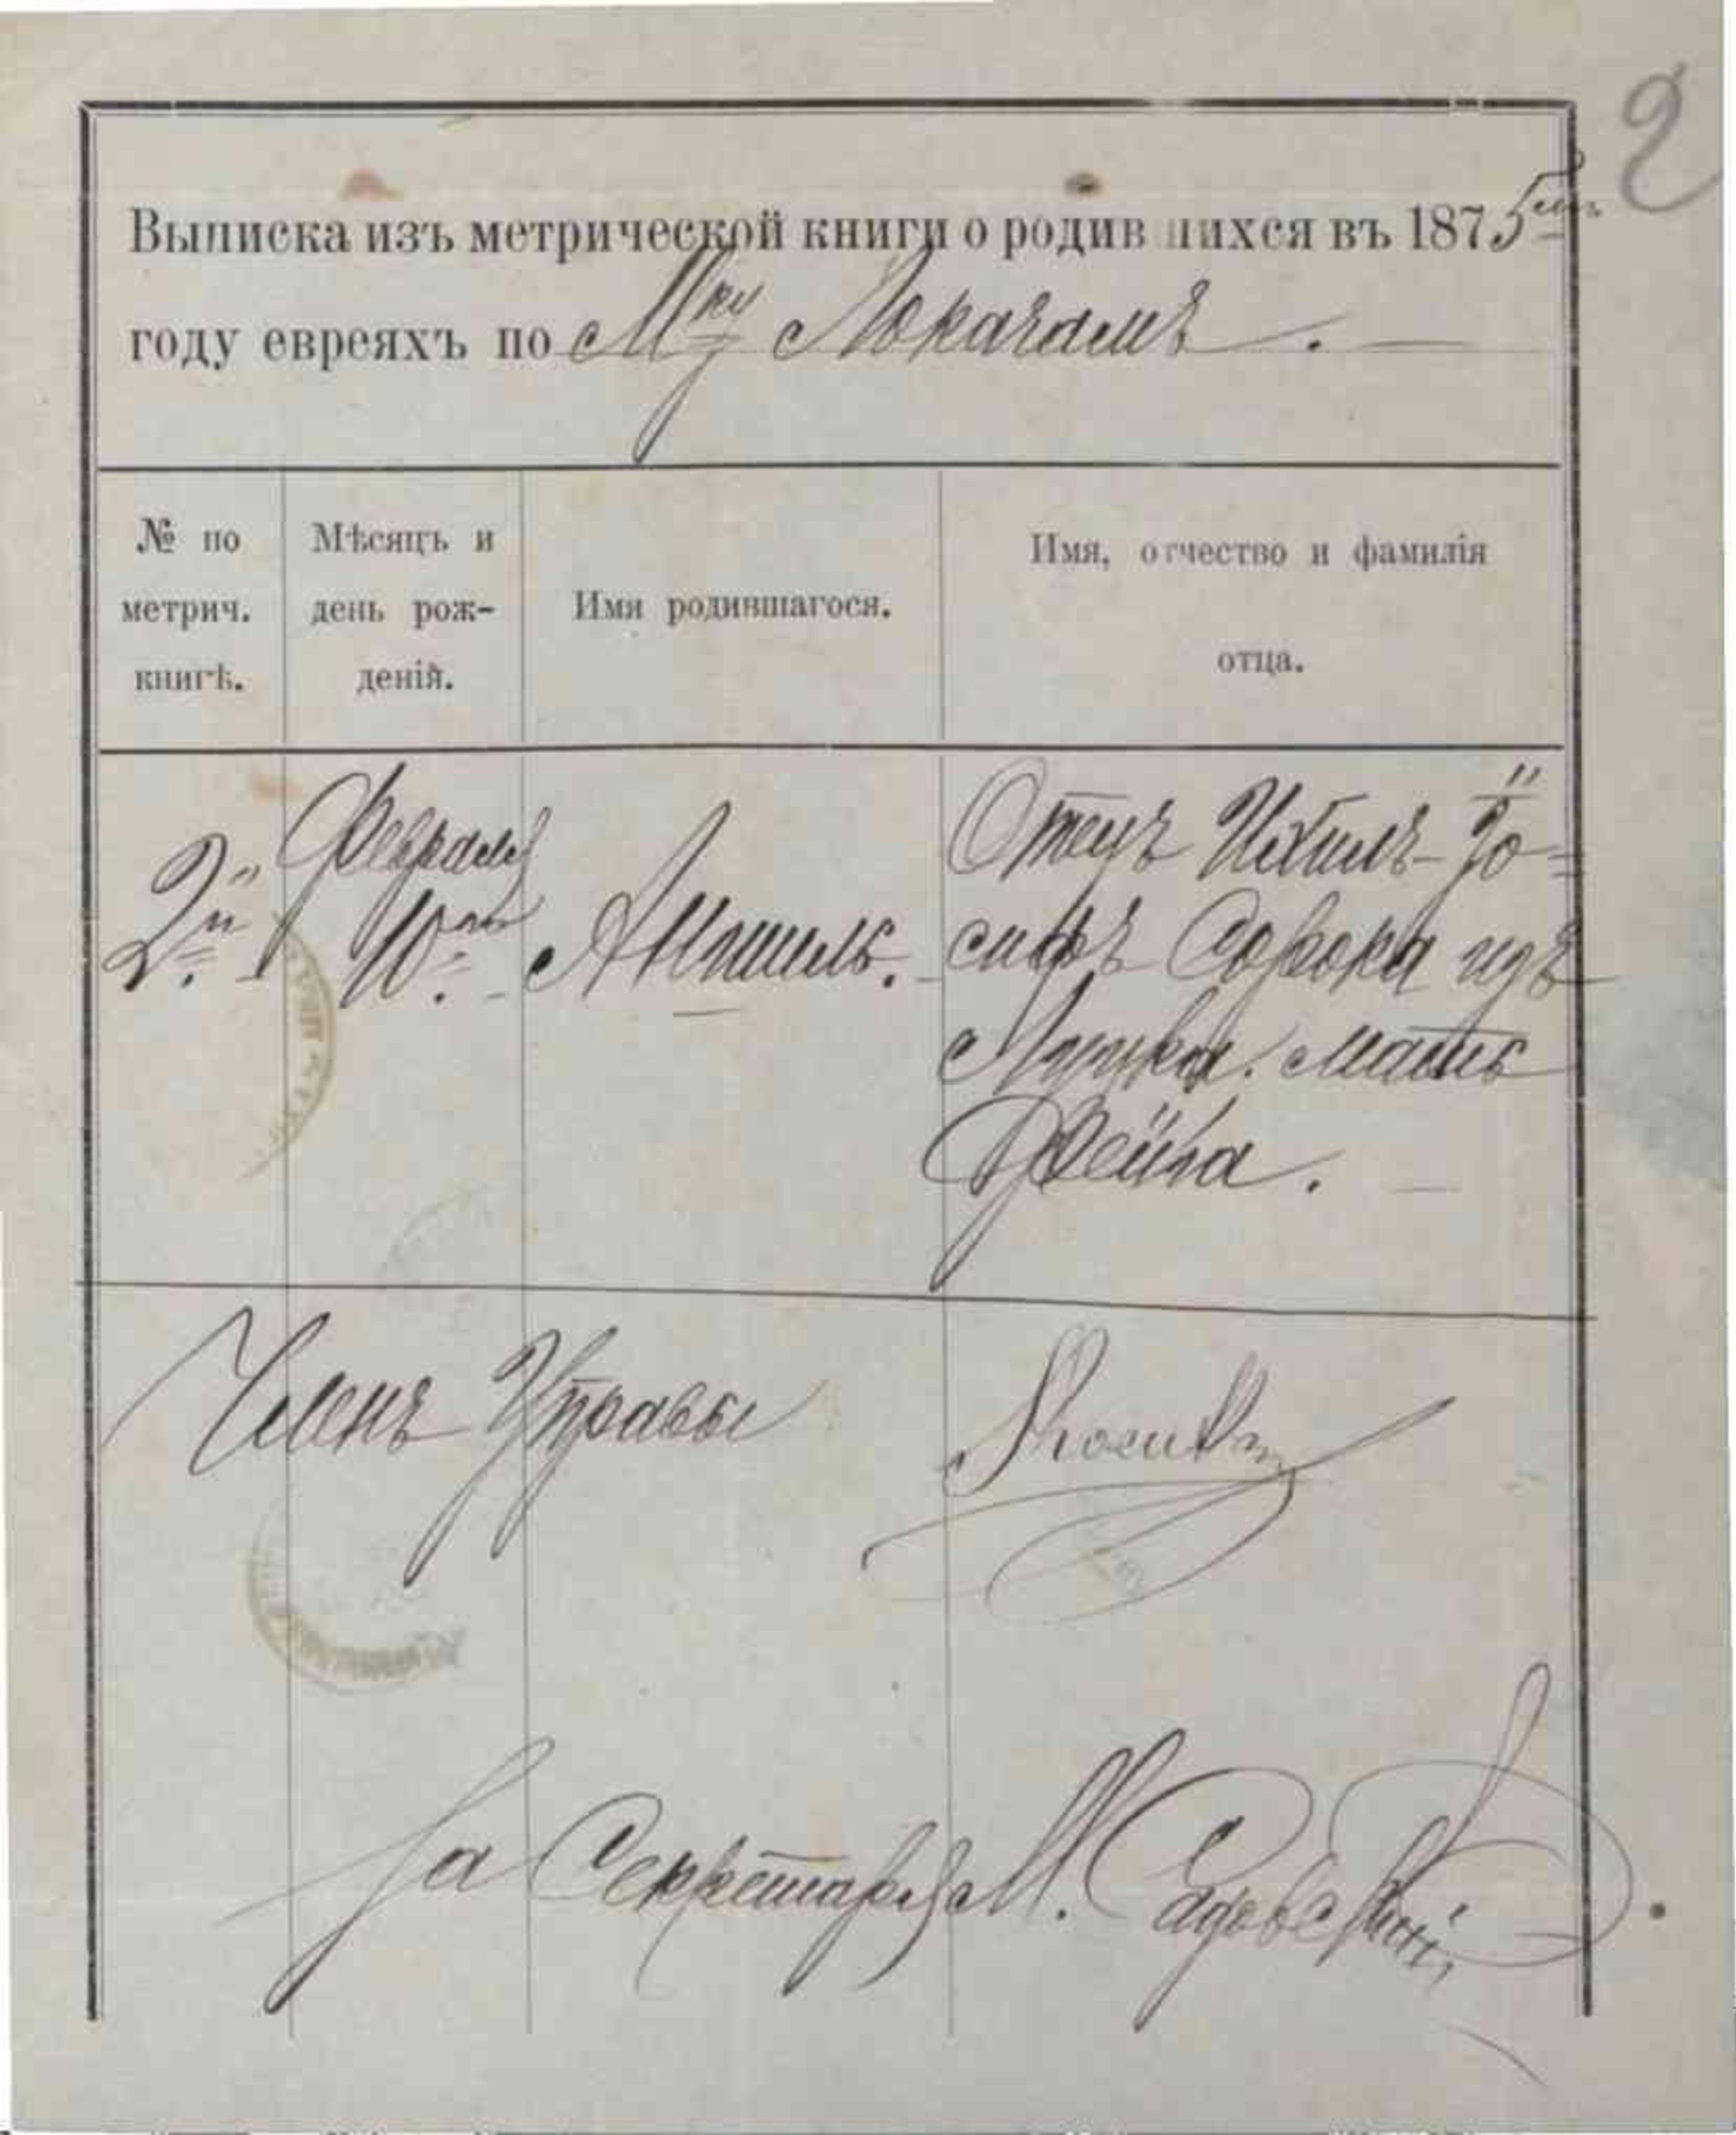 2
Выписка изъ метрической книги о родившихся въ 1875мъ
году евреяхъ по Мку Локачамъ.
№ по
метрич.
книгѣ.
Мѣсяцъ и
день рож-
деній.
Имя родившагося.
Имя, отчество и фамилія
отца.
2й
Февраля
10го
Аншель.
Отецъ Ихилъ-Іо-
сифъ Сорока изъ
Луцка. Мать
Фейга.
Членъ Управы
За Секретаря М. Садовскій